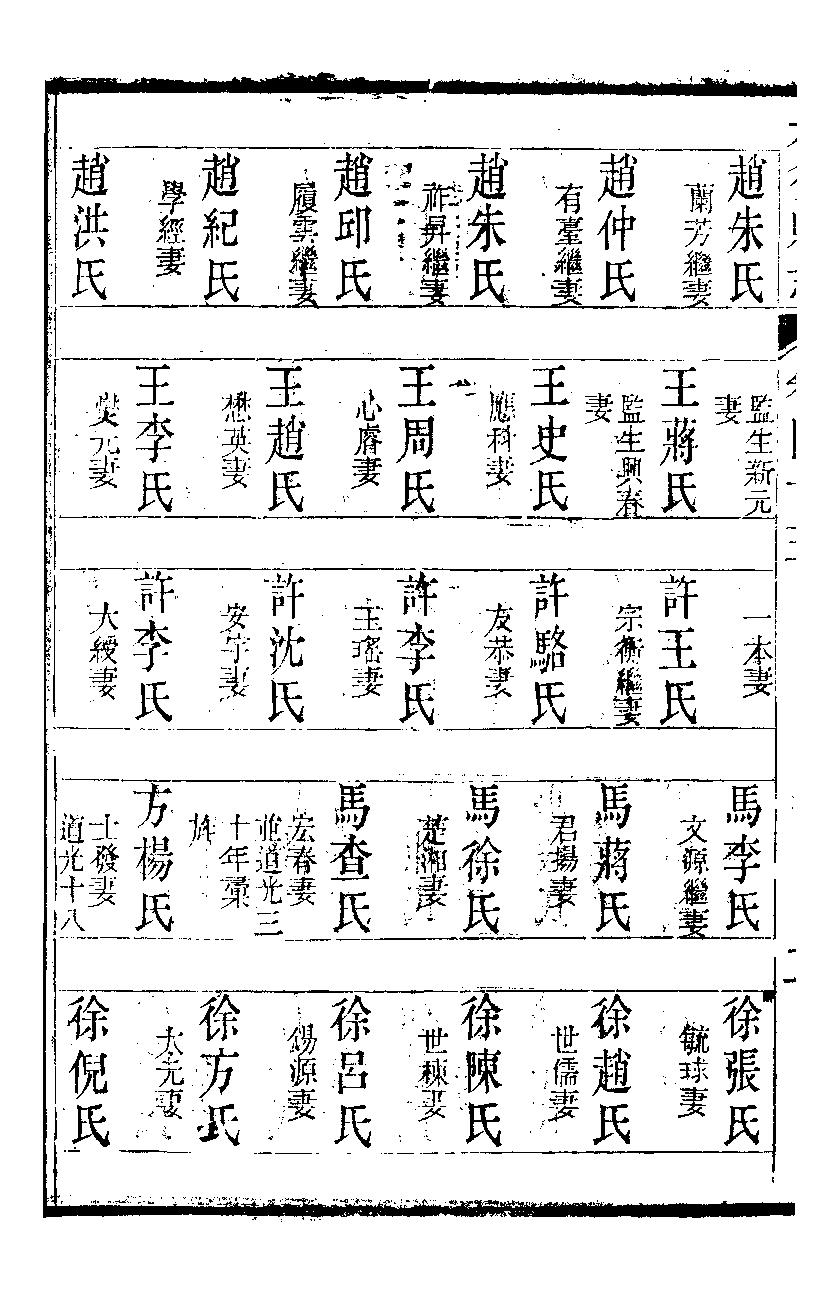 趙朱氏
蘭芳繼妻
趙仲氏
有臺繼妻
趙朱氏
祚昇繼妻
趙邱氏
履雲繼妻
趙紀氏
學經妻
趙洪氏
監生新元
妻
王蔣氏
監生興春
妻
王史氏
應科妻
王周氏
心膺妻
王趙氏
懋英妻
王李氏
元妻
一本妻
許王氏
宗衡繼妻
許駱氏
友恭妻
許李氏
玉瑤妻
許沈氏
安宇妻
許李氏
大綬妻
馬李氏
文源繼妻
馬蔣氏
君揚妻
馬徐氏
楚湘妻
馬查氏
宏春妻
並道光三
十年彙
旌
方楊氏
士發妻
道光十八
徐張氏
毓球妻
徐趙氏
世儒妻
徐陳氏
世棟妻
徐呂氏
錫源妻
徐方氏
大元妻
徐倪氏